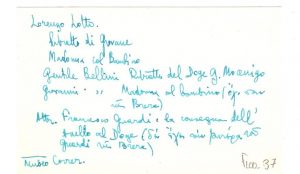 Lorenzo Lotto.
Ritratto di Giovane
Madonna col Bambino
Gentile Bellini Ritratto del Doge G. Mocenigo
Giovanni - ,, Madonna al bambino (
in Brera)
Attr. Francesco Guardi: la consegna dell'
anello al Doge (
Guardi in Brera)
Museo Correr.
37